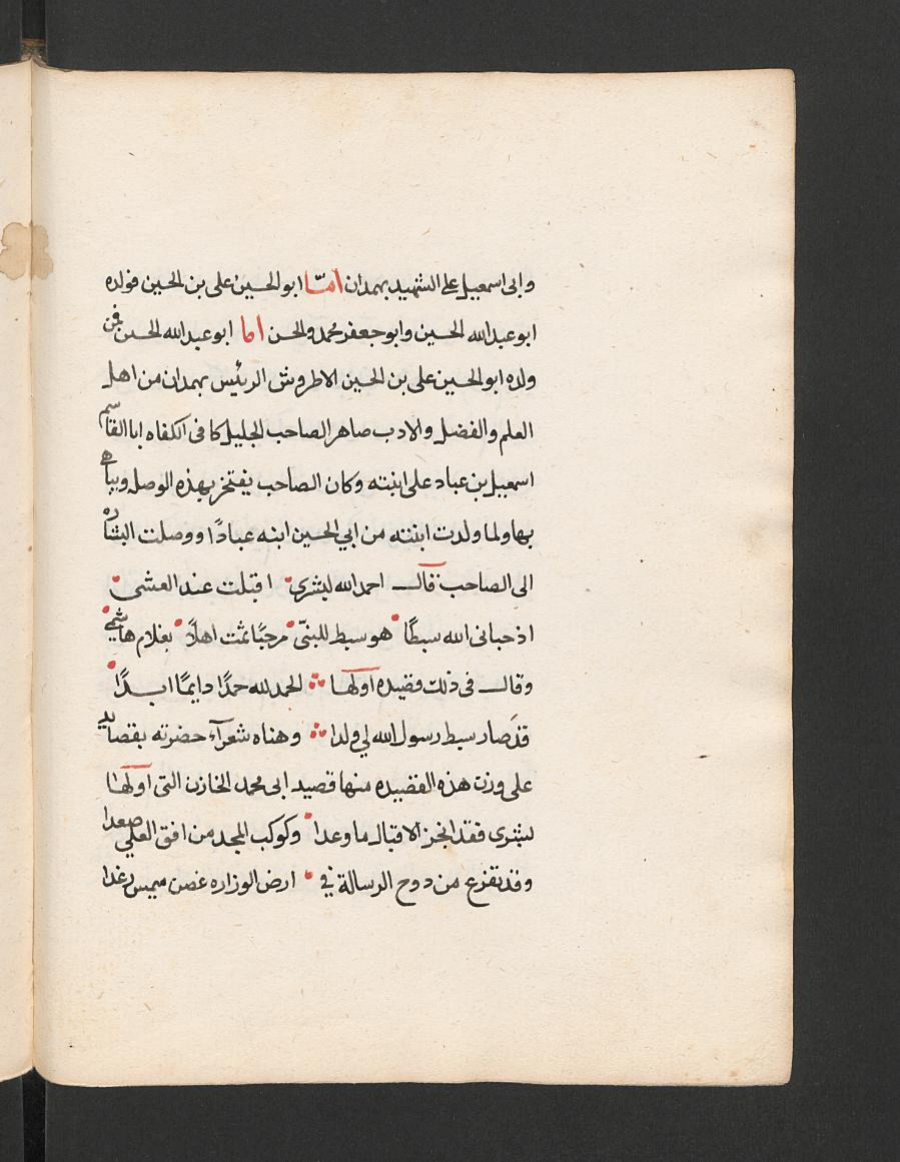 وابى اسمعيل على الشهيد بهمدان امّا ابو الحسين على بن الحسين فولده
ابو عبد الله الحسين وابو جعفر محمد والحسن اما ابو عبد الله الحسين فمن
ولده ابو الحسين على بن الحسين الاطروش الرئيس بهمدان من اهل
العلم والفضل والادب صاهر الصاحب الجليل كافى الكفاه ابا القاسم
اسمعيل بن عباد على ابنته وكان الصاحب يفتخر بهذه الوصله ويباهى
بها ولما ولدت ابنته من ابي الحسين ابنه عبادًا ووصلت البشاره
الى الصاحب قال احمد الله لبشرى اقبلت عند العشى
اذ حبانى الله سبطًا هو سبط للنبىّ مرحبًا ثمت اهلاً بغلام هاشمي
وقال فى ذلك قصيده اولها الحمد لله حمدًا دايمًا ابدًا
قد صار سبط رسول الله لي ولدا وهناه شعرآء حضرته بقصايد
على وزن هذه القصيده منها قصيد ابى محمد الخازن التى اولها
بشرى فقد انجز الاقبال ما وعدا وكوكب المجد من افق العلى صعدا
وقد تفرع من دوح الرسالة في ارض الوزاره غصن رغدا